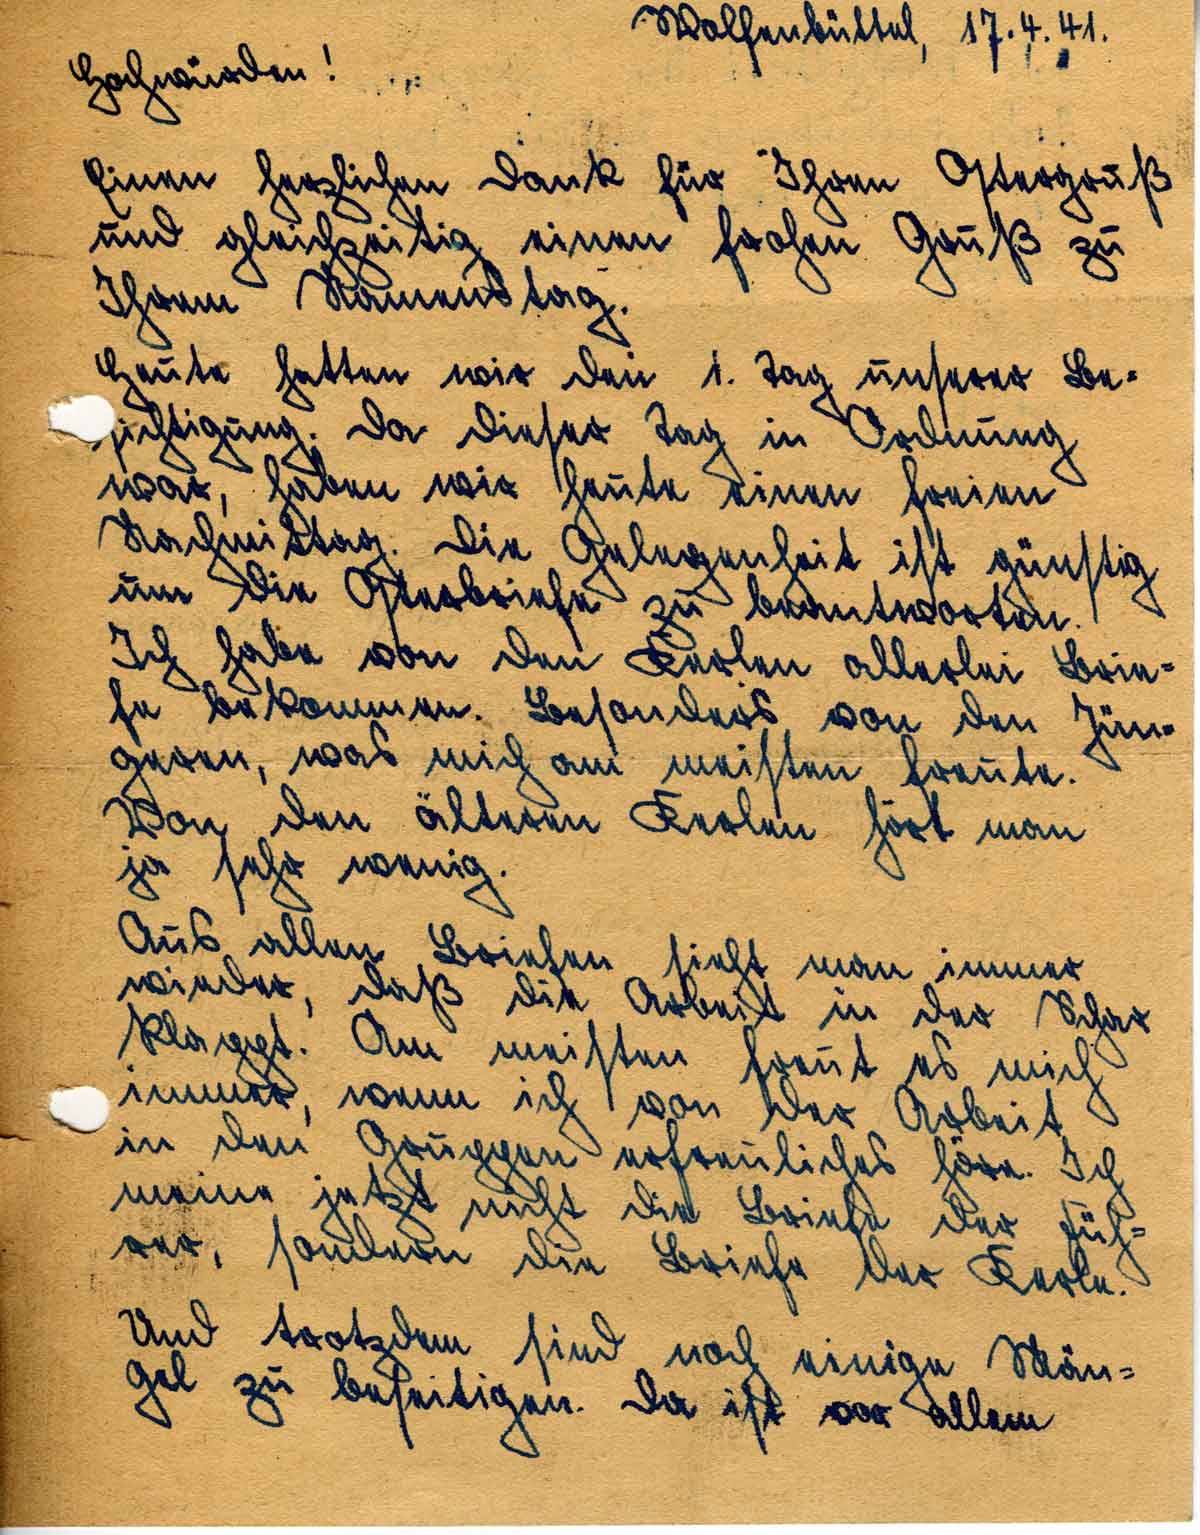 Wolfenbüttel, 17.4.41.
Hochwürden!
Einen herzlichen Dank für Ihren Ostergruß
und gleichzeitig einen frohen Gruß zu
Ihrem Namenstag.
Heute hatten wir den 1. Tag unserer Be-
sichtigung. Da dieser Tag in Ordnung
war, haben wir heute einen freien
Nachmittag. Die Gelegenheit ist günstig
um die Osterbriefe zu beantworten.
Ich habe von den Kerlen allerlei Brie-
fe bekommen. Besonders von den Jün-
geren, was mich am meisten freute.
Von den älteren Kerlen hört man
ja sehr wenig.
Aus allen Briefen sieht man immer
wieder, daß die Arbeit in der Schar
klappt. Am meisten freut es mich
immer, wenn ich von der Arbeit
in den Gruppen erfreuliches höre. Ich
meine jetzt nicht die Briefe der Füh-
rer, sondern die Briefe der Kerle.
Und trotzdem sind noch einige Män-
gel zu beseitigen. Da ist vor allem